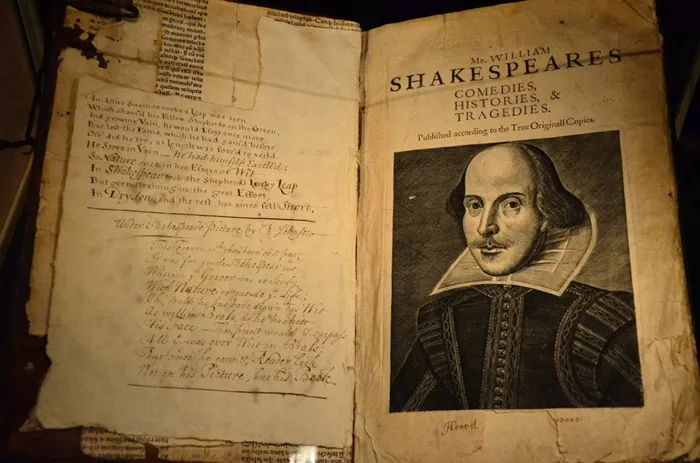 In Active Swain to make a Leap was seen
Which sham'd his Fellow Shepherds on the Green,
And growing Vain, he would Essay once more
But lost the Fame, which he had gain'd before,
Oft did he try, at length was forc'd to yeild
He Strove in Vain — he had himself Excell'd:
So Nature once in her Essays of Wit,
In Shakespear took the Shepherd's Lucky Leap
But over straining in the great Effort,
In Dryden, and the rest, has since fell Short.
Under Shakespears Picture by
This Figure
It was for gentle Shakespear cut
Wherein y Graver was at strife
With Nature to outdo y Life:
Oh, could he but have drawn his Wit
As well in Brass, as he has hitt
His Face — The print would surpass
All y was ever Writ in Brass:
But since he cannot, Reader look
Not on his Picture, but his Book
Mr. WILLIAM
SHAKESPEARES
COMEDIES,
HISTORIES, &
TRAGEDIES.
Published according to the True Originall Copies.